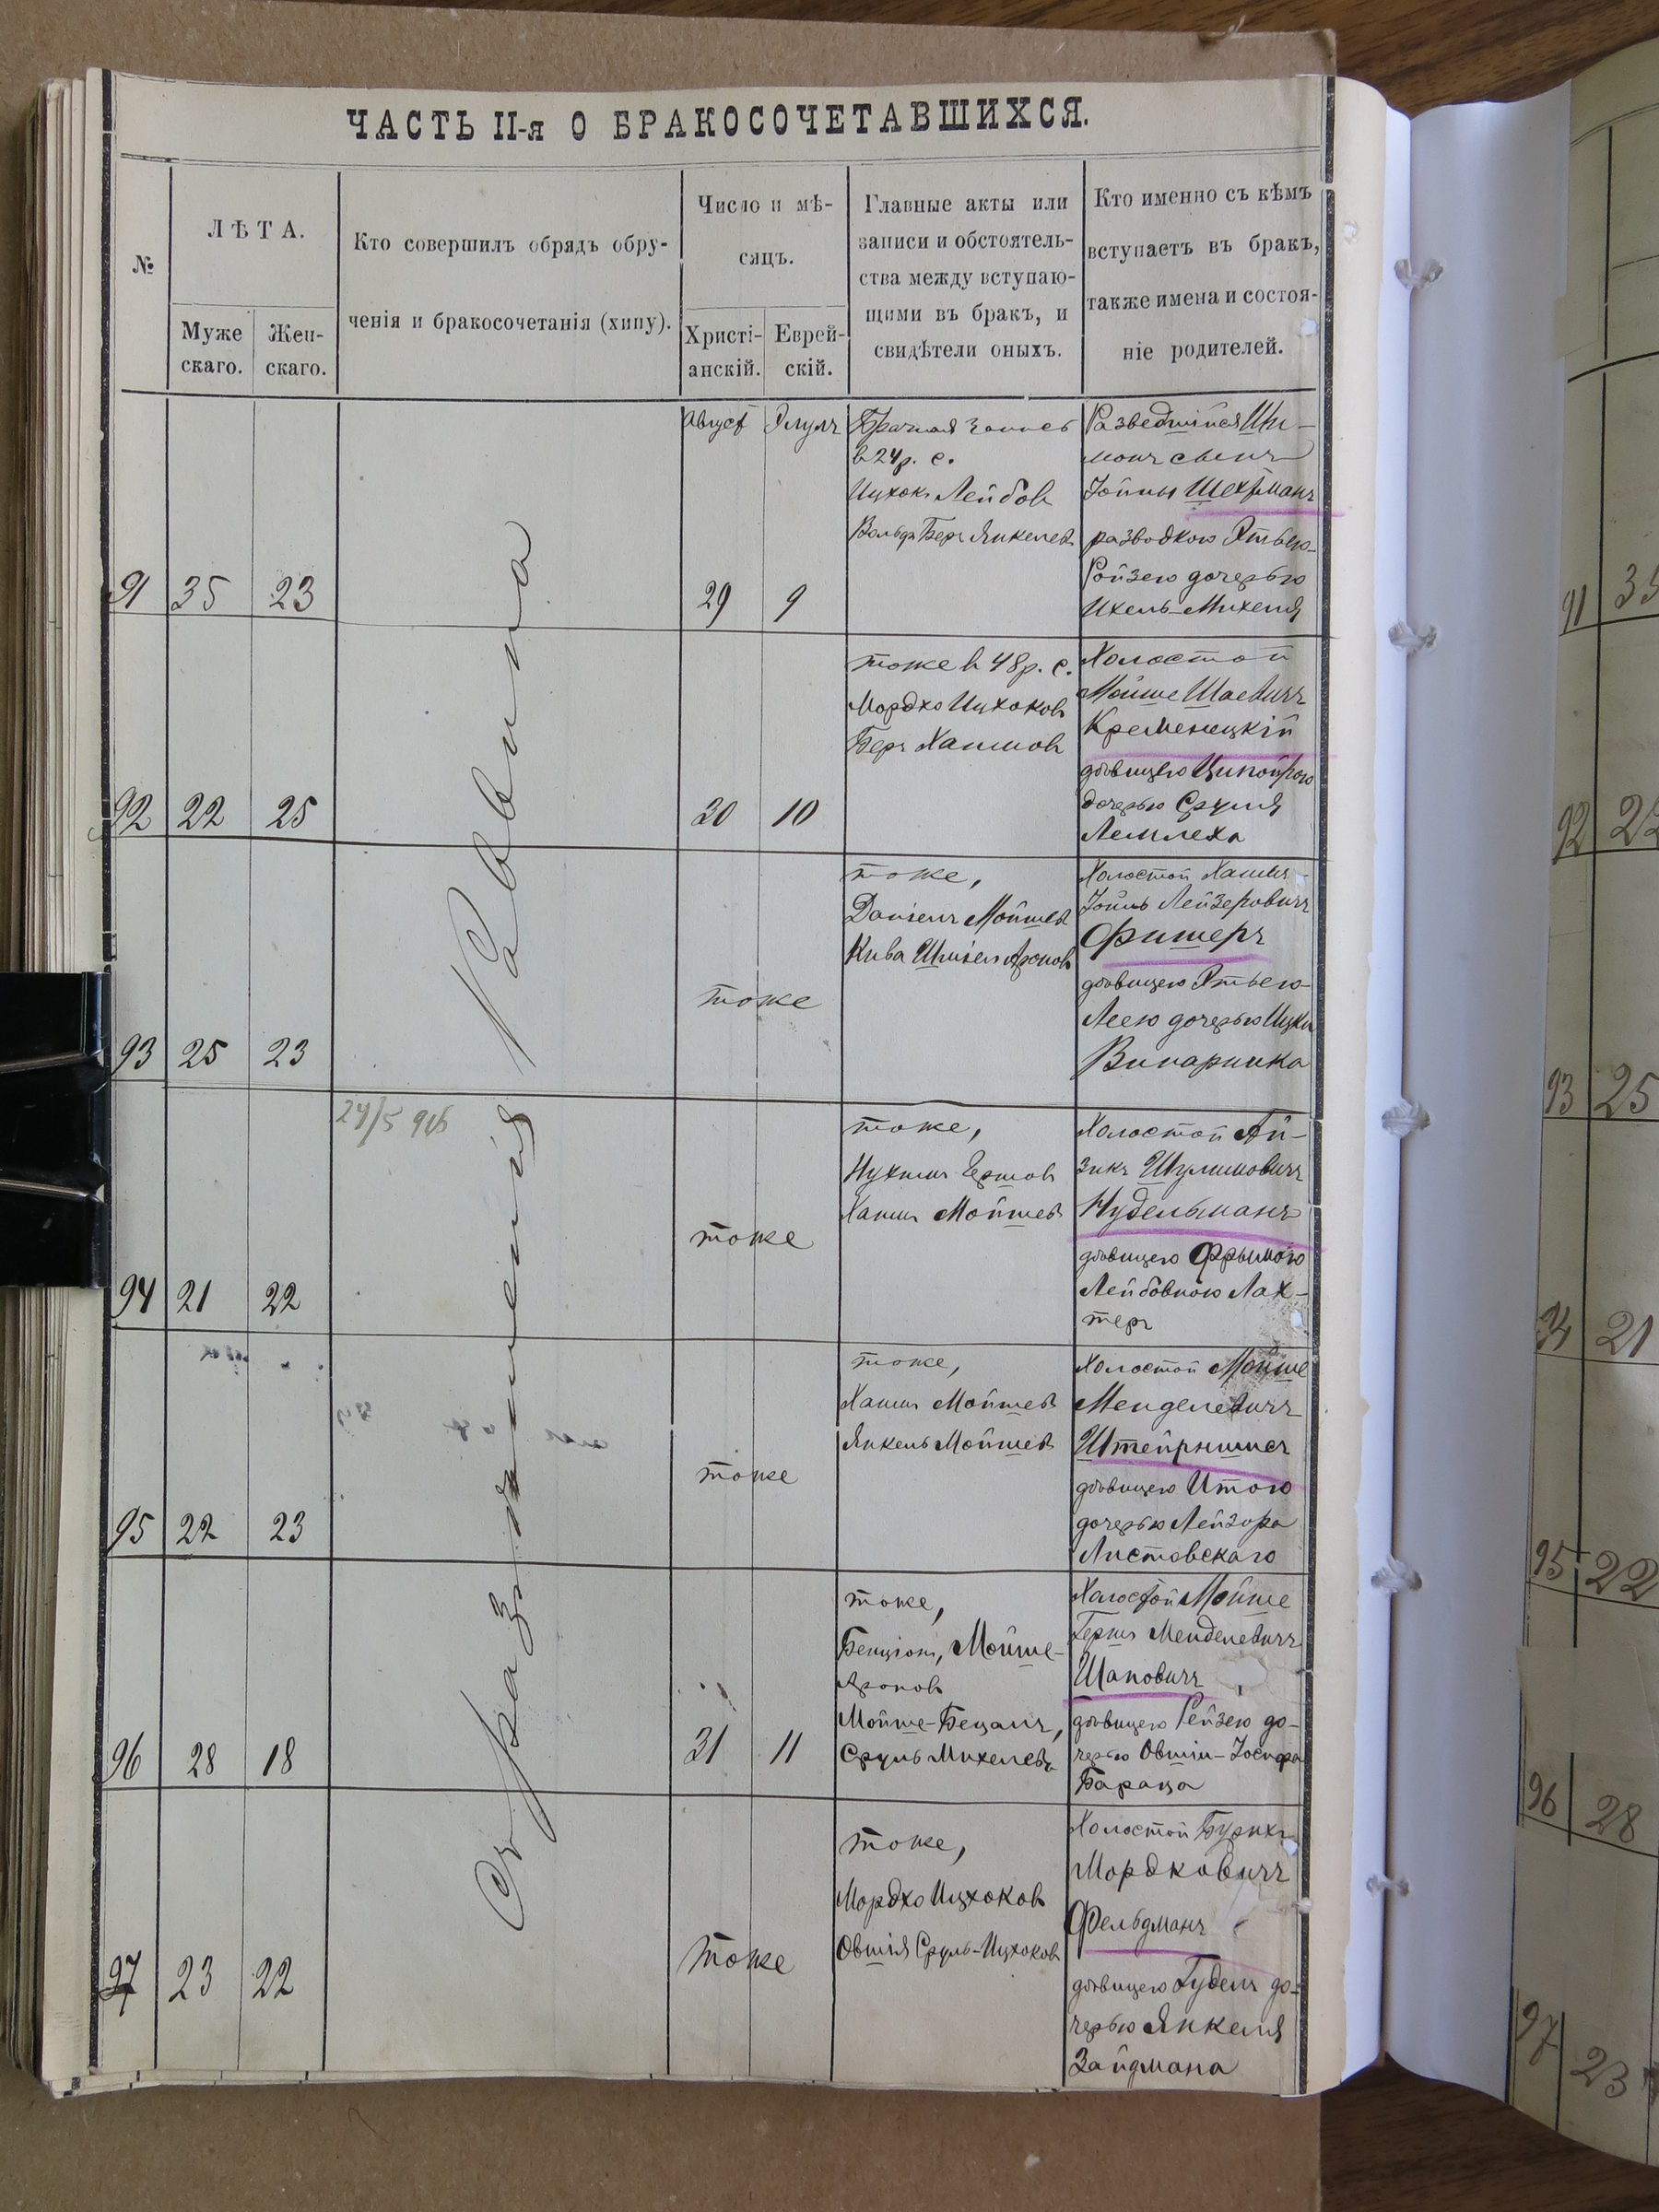 ЧАСТЬ II-я О БРАКОСОЧЕТАВШИХСЯ.
№
ЛѢТА.
Муже
скаго.
Жен-
скаго.
Кто совершилъ обрядъ обру-
ченія и бракосочетанія (хипу).
Число и мѣ-
сяцъ.
Христі-
анскій.
Еврей-
скій.
Главные акты или
записи и обстоятель-
ства между вступаю-
щими въ бракъ, и
свидѣтели оныхъ.
Кто именно съ кѣмъ
вступаетъ въ бракъ,
также имена и состоя-
ніе родителей.
Съ разрѣшенія Раввина
91 35 23
Август Элулъ
29 9
Брачная запись
в 24 р. с.
Ицхокъ Лейбов
Вольфъ Беръ Янкелев
Разведшійся Ши-
монъ сынъ
Іойны Шехтманъ
разводкою Этьею-
Ройзею дочерью
Ихель-Михеля
92 22 25
30 10
тоже в 48 р. с.
Мордхо Ицхоковъ
Беръ Хаимовъ
Холостой
Мойше Шаевичъ
Кременецкій
дѣвицею Ципойрою
дочерью Сруля
Лемлеха
93 25 23
тоже
тоже,
Даніелъ Мойшев
Кива Шміел Ароновъ
Холостой Хаимъ-
Іойль Лейзеровичъ
Фишеръ
дѣвицею Этьею-
Леею дочерью Ицки
Винарника
24/5 916
94 21 22
тоже
тоже,
Нухимъ Гершов
Хаимъ Мойшев
Холостой Ай-
зикъ Шулимовичъ
Нудельманъ
дѣвицею Фрымою
Лейбовною Лах-
теръ
95 22 23
тоже
тоже,
Хаимъ Мойшев
Янкель Мойшев
Холостой Мойше
Менделевичъ
Штейрнишъ
дѣвицею Итою
дочерью Лейзора
Листовскаго
96 28 18
31 11
тоже,
Бенціонъ, Мойше-
Ароновъ
Мойше-Бецалъ,
Сруль Михелевъ
Холостой Мойше
Гершъ Менделевичъ
Шаповичъ
дѣвицею Рейзею до-
черью Овшіи-Іосифа
Бараца
97 23 22
тоже
тоже,
Мордхо Ицхоковъ
Овшія Сруль-Ицхоков
Холостой Бурихъ
Мордковичъ
Фельдманъ
дѣвицею Гудель до-
черью Янкеля
Зайдмана
91 35
92 22
93 25
94 21
95 22
96 28
97 23